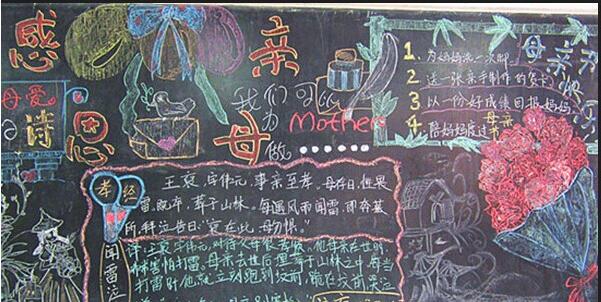 感恩
母亲
母爱
诗
我们可以
为Mother
做......
1. 为妈妈洗一次脚
2. 送一张亲手制作的贺卡
3. 以一份好成绩回报妈妈
4. 陪妈妈度过母亲节
母亲节快乐
孝经
闻雷泣
王裒,字伟元,事亲至孝。母存日,性畏
雷,既卒,葬于山林。每遇风雨闻雷,即奔墓
所,拜泣告曰:“裒在此,母勿惧。”
译:王裒,字伟元,对待父母很孝敬。他母亲在世时,
林害怕打雷。母亲去世后埋葬于山林之中,每当
打雷时,他就立刻跑到坟前,跪在坟前哭泣